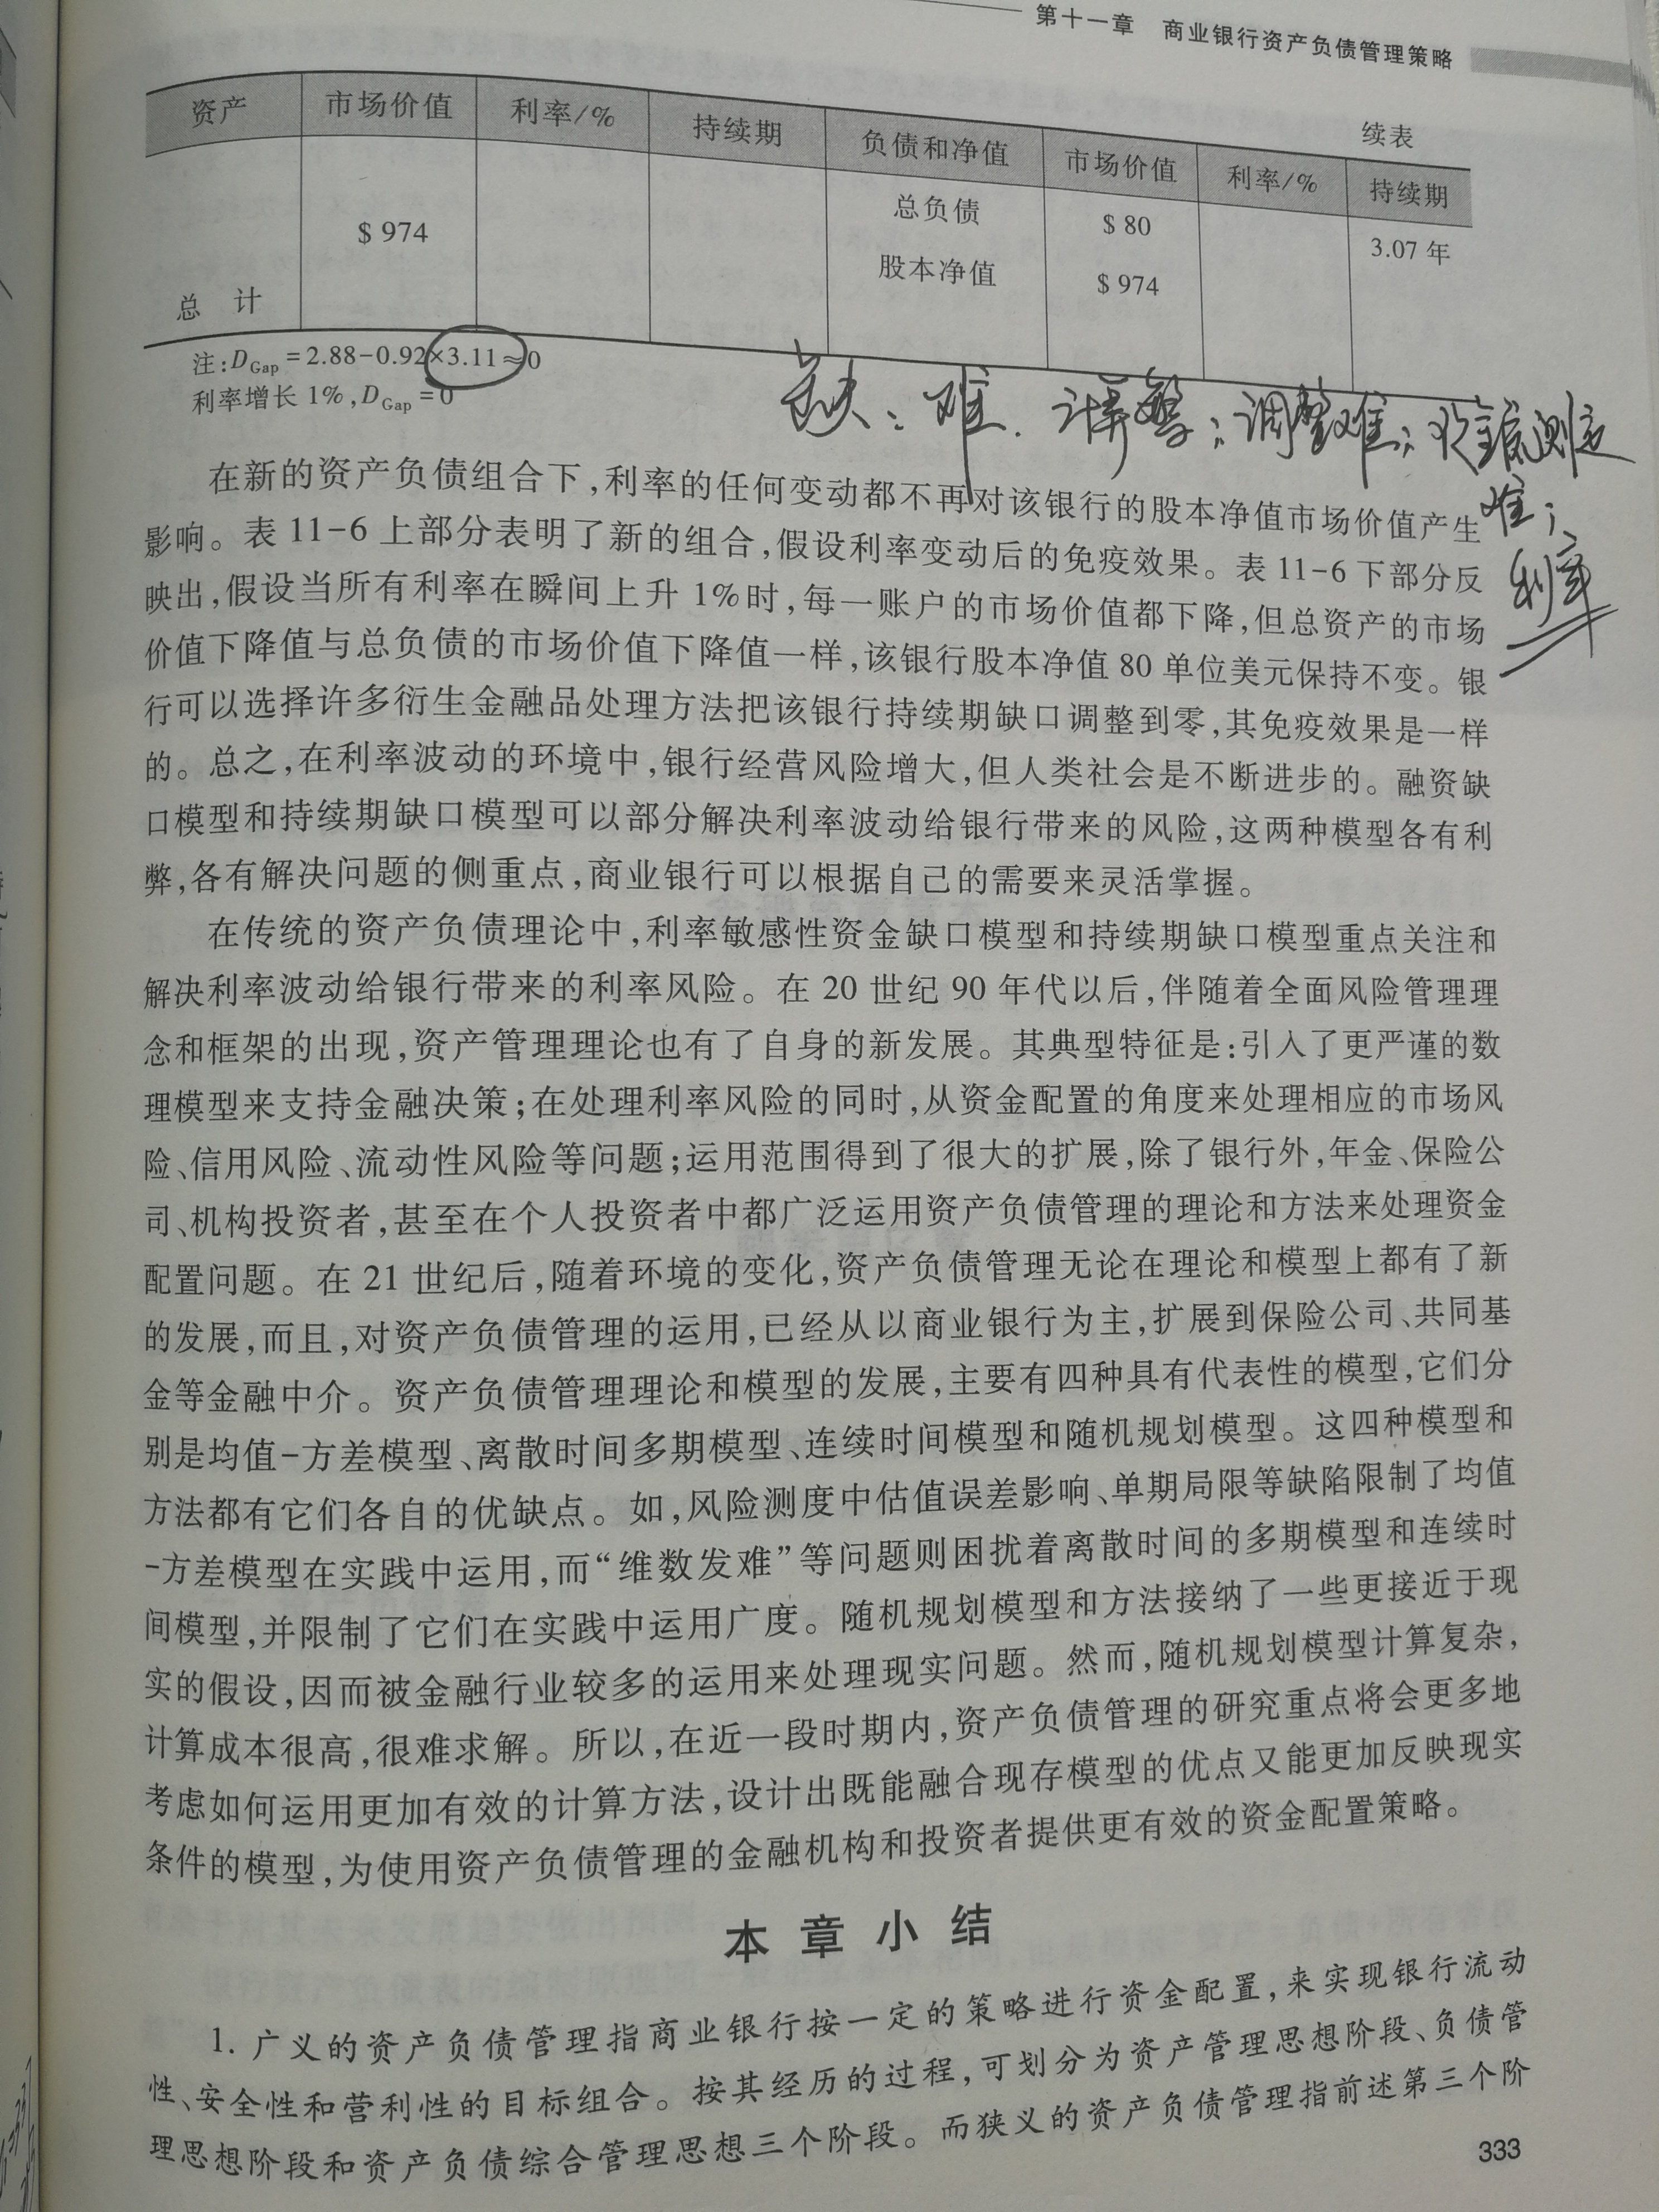 第十一章 商业银行资产负债管理策略
续表
资产 市场价值 利率/% 持续期 负债和净值 市场价值 利率/% 持续期
总负债 3.07 年
股本净值 $ 80
总 计 $ 974 $ 974
注:DGap=2.88-0.92×3.11≈0
利率增长 1%,DGap=0
缺:难.计算繁;调整难;现金流测定
难;
利率
在新的资产负债组合下,利率的任何变动都不再对该银行的股本净值市场价值产生
影响。表 11-6 上部分表明了新的组合,假设利率变动后的免疫效果。表 11-6 下部分反
映出,假设当所有利率在瞬间上升 1%时,每一账户的市场价值都下降,但总资产的市场
价值下降值与总负债的市场价值下降值一样,该银行股本净值 80 单位美元保持不变。银
行可以选择许多衍生金融品处理方法把该银行持续期缺口调整到零,其免疫效果是一样
的。总之,在利率波动的环境中,银行经营风险增大,但人类社会是不断进步的。融资缺
口模型和持续期缺口模型可以部分解决利率波动给银行带来的风险,这两种模型各有利
弊,各有解决问题的侧重点,商业银行可以根据自己的需要来灵活掌握。
在传统的资产负债理论中,利率敏感性资金缺口模型和持续期缺口模型重点关注和
解决利率波动给银行带来的利率风险。在 20 世纪 90 年代以后,伴随着全面风险管理理
念和框架的出现,资产管理理论也有了自身的新发展。其典型特征是:引入了更严谨的数
理模型来支持金融决策;在处理利率风险的同时,从资金配置的角度来处理相应的市场风
险、信用风险、流动性风险等问题;运用范围得到了很大的扩展,除了银行外,年金、保险公
司、机构投资者,甚至在个人投资者中都广泛运用资产负债管理的理论和方法来处理资金
配置问题。在 21 世纪后,随着环境的变化,资产负债管理无论在理论和模型上都有了新
的发展,而且,对资产负债管理的运用,已经从以商业银行为主,扩展到保险公司、共同基
金等金融中介。资产负债管理理论和模型的发展,主要有四种具有代表性的模型,它们分
别是均值-方差模型、离散时间多期模型、连续时间模型和随机规划模型。这四种模型和
方法都有它们各自的优缺点。如,风险测度中估值误差影响、单期局限等缺陷限制了均值
-方差模型在实践中运用,而“维数发难”等问题则困扰着离散时间的多期模型和连续时
间模型,并限制了它们在实践中运用广度。随机规划模型和方法接纳了一些更接近于现
实的假设,因而被金融行业较多的运用来处理现实问题。然而,随机规划模型计算复杂,
计算成本很高,很难求解。所以,在近一段时期内,资产负债管理的研究重点将会更多地
考虑如何运用更加有效的计算方法,设计出既能融合现存模型的优点又能更加反映现实
条件的模型,为使用资产负债管理的金融机构和投资者提供更有效的资金配置策略。
本章小结
1. 广义的资产负债管理指商业银行按一定的策略进行资金配置,来实现银行流动
性、安全性和营利性的目标组合。按其经历的过程,可划分为资产管理思想阶段、负债管
理思想阶段和资产负债综合管理思想三个阶段。而狭义的资产负债管理指前述第三个阶
333